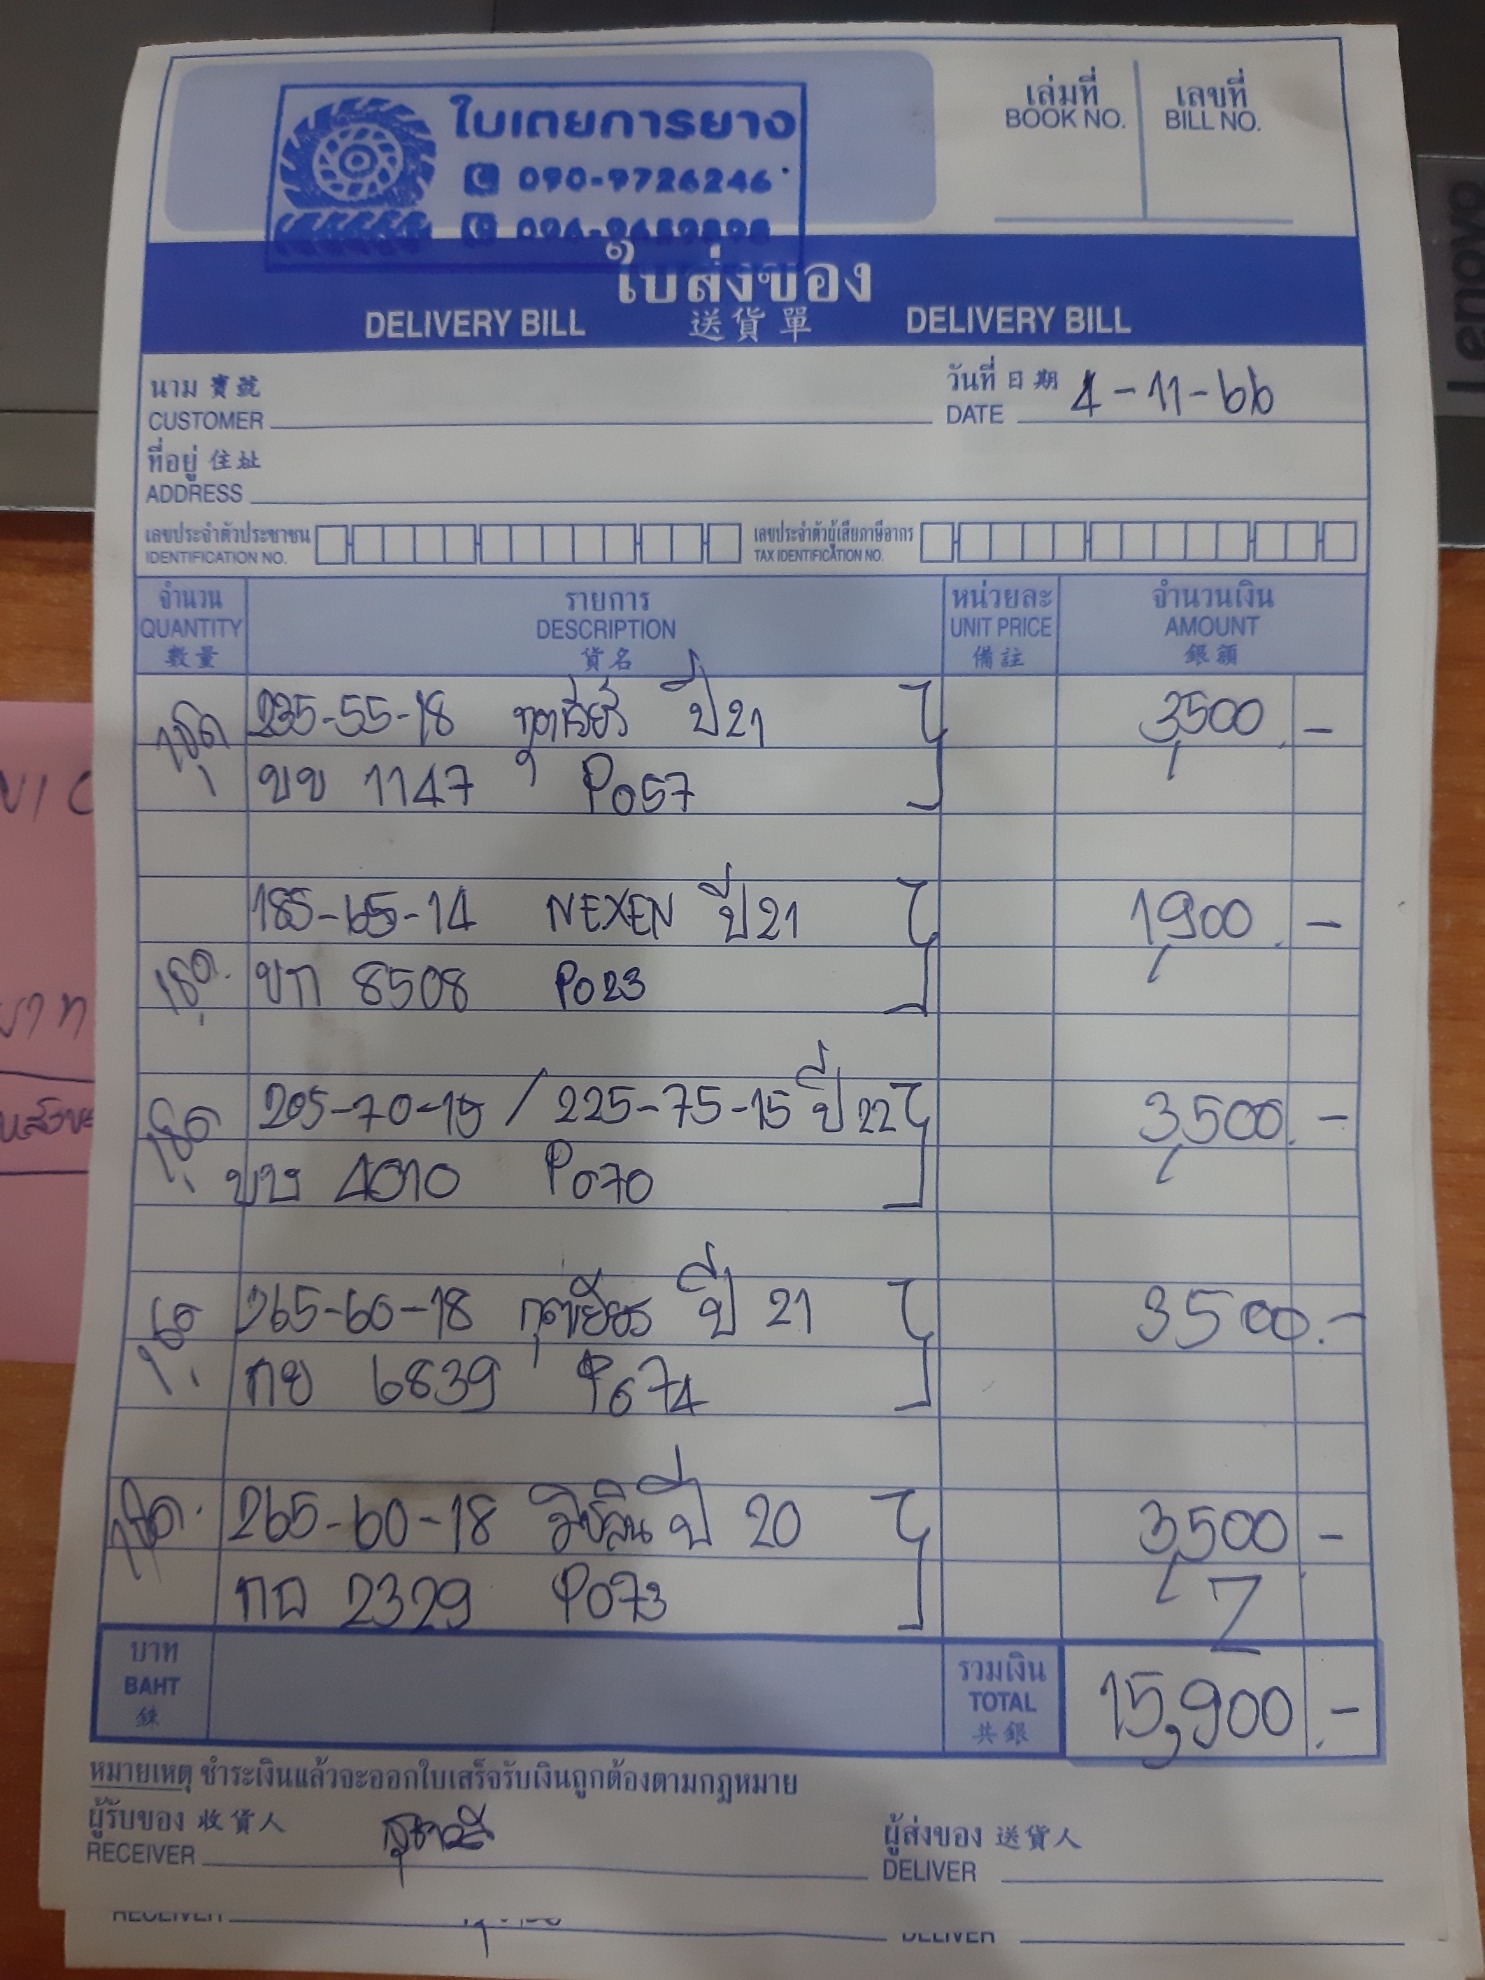 ใบเตยการยาง
090-9726246
096-9659898
เล่มที่ เลขที่
BOOK NO. BILL NO.
ใบส่งของ
DELIVERY BILL 送貨單 DELIVERY BILL
นาม 寶號 วันที่ 日期 4-11-66
CUSTOMER DATE
ที่อยู่ 住址
ADDRESS
เลขประจำตัวประชาชน เลขประจำตัวผู้เสียภาษีอากร
IDENTIFICATION NO. TAX IDENTIFICATION NO.
จำนวน รายการ หน่วยละ จำนวนเงิน
QUANTITY DESCRIPTION UNIT PRICE AMOUNT
數量 貨名 備註 銀額
1ชุด 235-55-18 กู๊ดเยียร์ ปี 21 3,500 -
ขข 1147 P057
185-65-14 NEXEN ปี 21 1,900 -
1ชุด. ขก 8508 P023
1ชุด 205-70-15 / 225-75-15 ปี 22 3,500.-
4010 P070
1ชุด 265-60-18 กู๊ดเยียร ปี 21 3500.-
กย 6839 P074
1ชุด. 265-60-18 มิชลิน ปี 20 3,500 -
2329 P073
บาท รวมเงิน
BAHT TOTAL 15,900.-
共銀
หมายเหตุ ชำระเงินแล้วจะออกใบเสร็จรับเงินถูกต้องตามกฎหมาย
ผู้รับของ 收貨人 ผู้ส่งของ 送貨人
RECEIVER DELIVER
RECEIVER DELIVER
lenovo